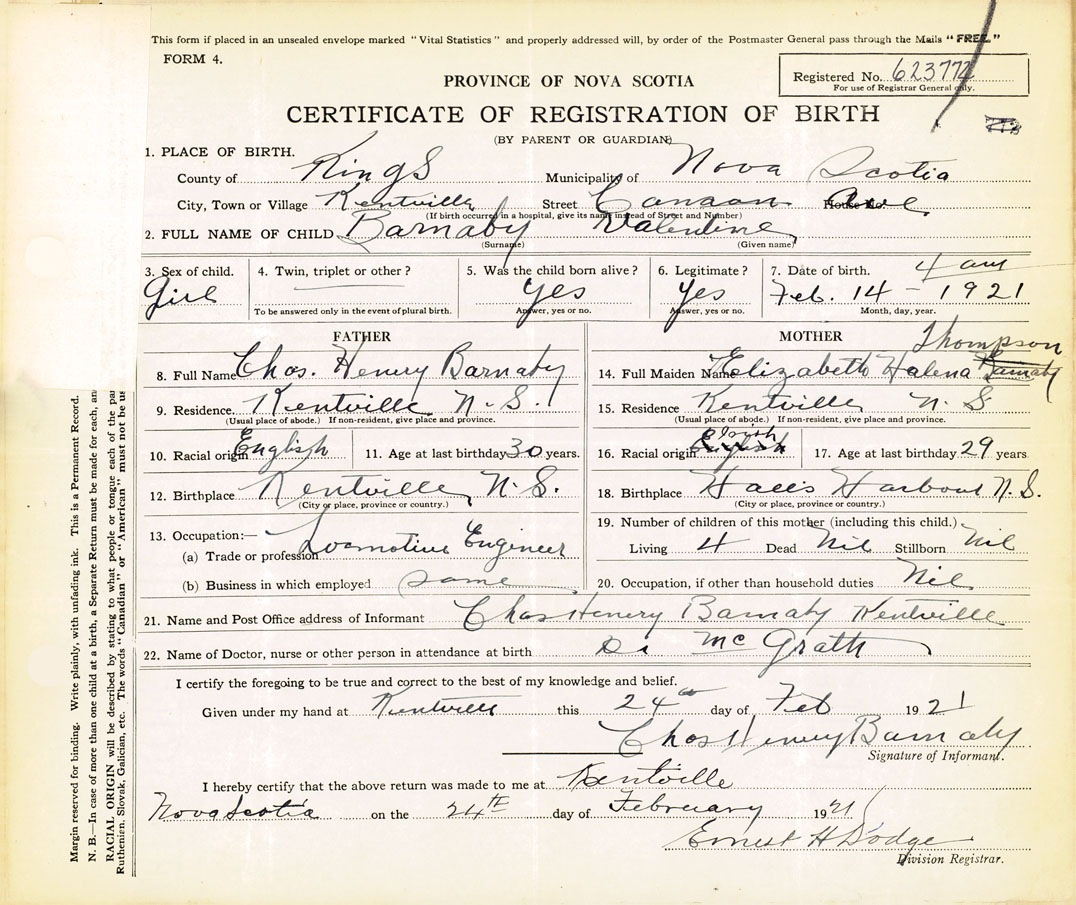 This form if placed in an unsealed envelope marked "Vital Statistics" and properly addressed will, by order of the Postmaster General pass through the Mails "FREE."
FORM 4.
Registered No. 623772
For use of Registrar General only.
PROVINCE OF NOVA SCOTIA
CERTIFICATE OF REGISTRATION OF BIRTH
(BY PARENT OR GUARDIAN)
1. PLACE OF BIRTH.
County of Kings Municipality of Nova Scotia
City, Town or Village Kentville Street Canaan House No. Ave
(If birth occurred in a hospital, give its name instead of Street and Number)
2. FULL NAME OF CHILD Barnaby Valentine
(Surname) (Given name)
3. Sex of child. 4. Twin, triplet or other? 5. Was the child born alive? 6. Legitimate? 7. Date of birth. 4 am
Girl Yes Yes Feb. 14 - 1921
To be answered only in the event of plural birth. Answer, yes or no. Answer, yes or no. Month, day, year.
FATHER
8. Full Name Chas. Henery Barnaby
9. Residence. Kentville N.S.
(Usual place of abode.) If non-resident, give place and province.
10. Racial origin English 11. Age at last birthday 30 years.
12. Birthplace Kentville, N.S.
(City or place, province or country.)
13. Occupation:—
(a) Trade or profession Locomotive Engineer
(b) Business in which employed same
MOTHER
Thompson
14. Full Maiden Name Elizabeth Halena Barnaby
15. Residence Kentville N.S
(Usual place of abode.) If non-resident, give place and province.
16. Racial origin English 17. Age at last birthday 29 years
18. Birthplace Halls Harbour N.S.
(City or place, province or country.)
19. Number of children of this mother (including this child.)
Living 4 Dead Nil Stillborn Nil
20. Occupation, if other than household duties Nil
21. Name and Post Office address of Informant Chas Henery Barnaby Kentville
22. Name of Doctor, nurse or other person in attendance at birth Dr McGrath
I certify the foregoing to be true and correct to the best of my knowledge and belief.
Given under my hand at Kentville this 24th day of Feb 1921
Chas Henery Barnaby
Signature of Informant.
I hereby certify that the above return was made to me at Kentville
Nova Scotia on the 24th day of February 1921
Ernest H Dodge
Division Registrar.
Margin reserved for binding. Write plainly, with unfading ink. This is a Permanent Record.
N. B.—In case of more than one child at a birth, a Separate Return must be made for each, an
RACIAL ORIGIN will be described by stating to what people or tongue each of the pa
Ruthenien, Slovak, Galician, etc. The words "Canadian" or "American" must not be us